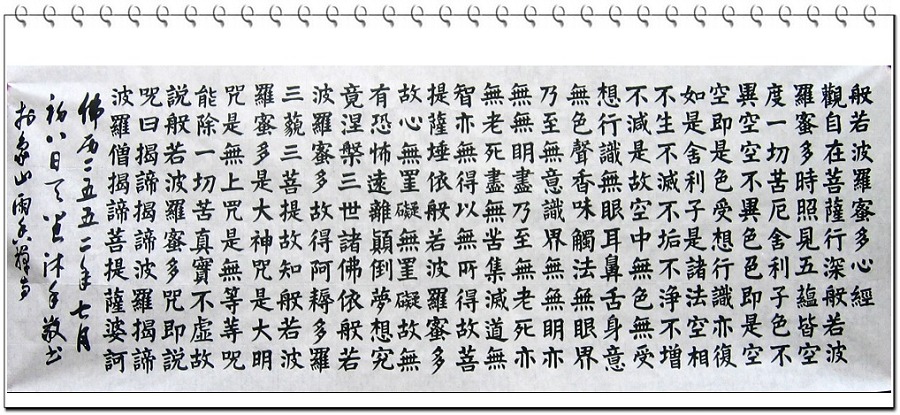 般若波羅蜜多心經
觀自在菩薩行深般若波
羅蜜多時照見五蘊皆空
度一切苦厄舍利子色不
異空空不異色色即是空
空即是色受想行識亦復
如是舍利子是諸法空相
不生不滅不垢不淨不增
不減是故空中無色無受
想行識無眼耳鼻舌身意
無色聲香味觸法無眼界
乃至無意識界無無明亦
無無明盡乃至無老死亦
無老死盡無苦集滅道無
智亦無得以無所得故菩
提薩埵依般若波羅蜜多
故心無罣礙無罣礙故無
有恐怖遠離顛倒夢想究
竟涅槃三世諸佛依般若
波羅蜜多故得阿耨多羅
三藐三菩提故知般若波
羅蜜多是大神咒是大明
咒是無上咒是無等等呪
能除一切苦真實不虛故
說般若波羅蜜多咒即說
呪曰揭諦揭諦波羅揭諦
波羅僧揭諦菩提薩婆訶
佛历二五五二年七月
初八日沐手敬书
象山雨